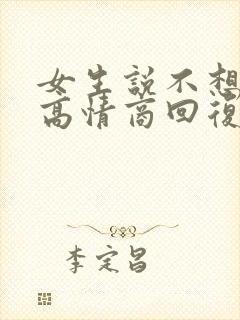 女生説不想
高情商回復
李定昌